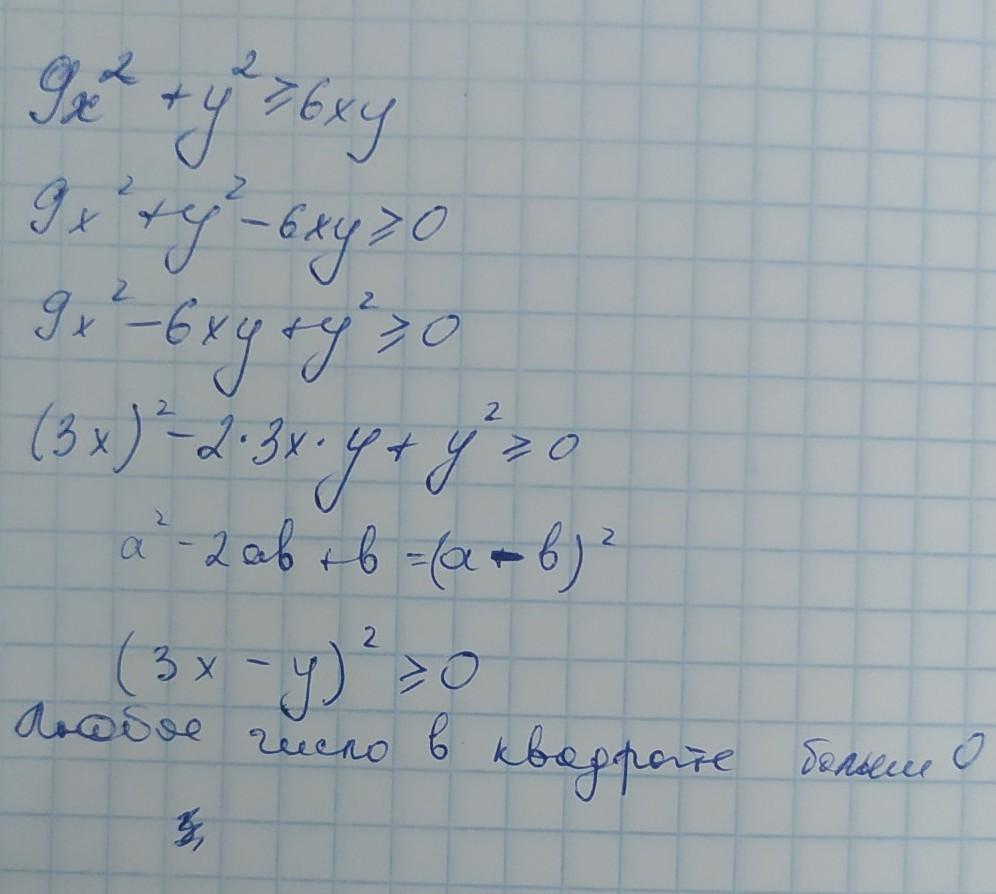 9x² + y² ≥ 6xy
9x² + y² - 6xy ≥ 0
9x² - 6xy + y² ≥ 0
(3x)² - 2·3x·y + y² ≥ 0
a² - 2ab + b = (a - b)²
(3x - y)² ≥ 0
Любое число в квадрате больше 0